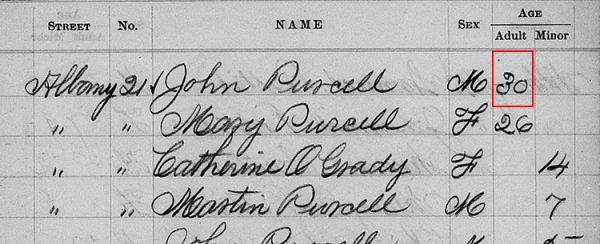 STREET No. NAME SEX AGE
Adult Minor
Albany 21 John Purcell M 30
" " Mary Purcell F 26
" " Catherine O Grady F 14
" " Martin Purcell M 7
John Purcell M